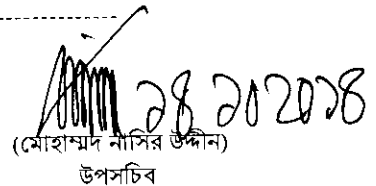 ২৪ ১০ ২০১৪
(মোহাম্মদ নাসির উদ্দীন)
উপসচিব